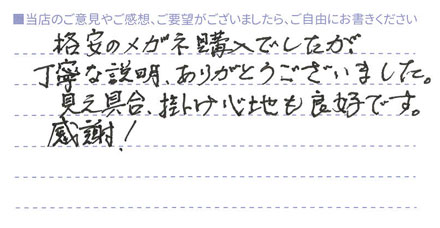 ■当店のご意見やご感想、ご要望がございましたら、ご自由にお書きください
格安のメガネ購入でしたが、
丁寧な説明、ありがとうございました。
見え具合、掛け心地も良好です。
感謝！